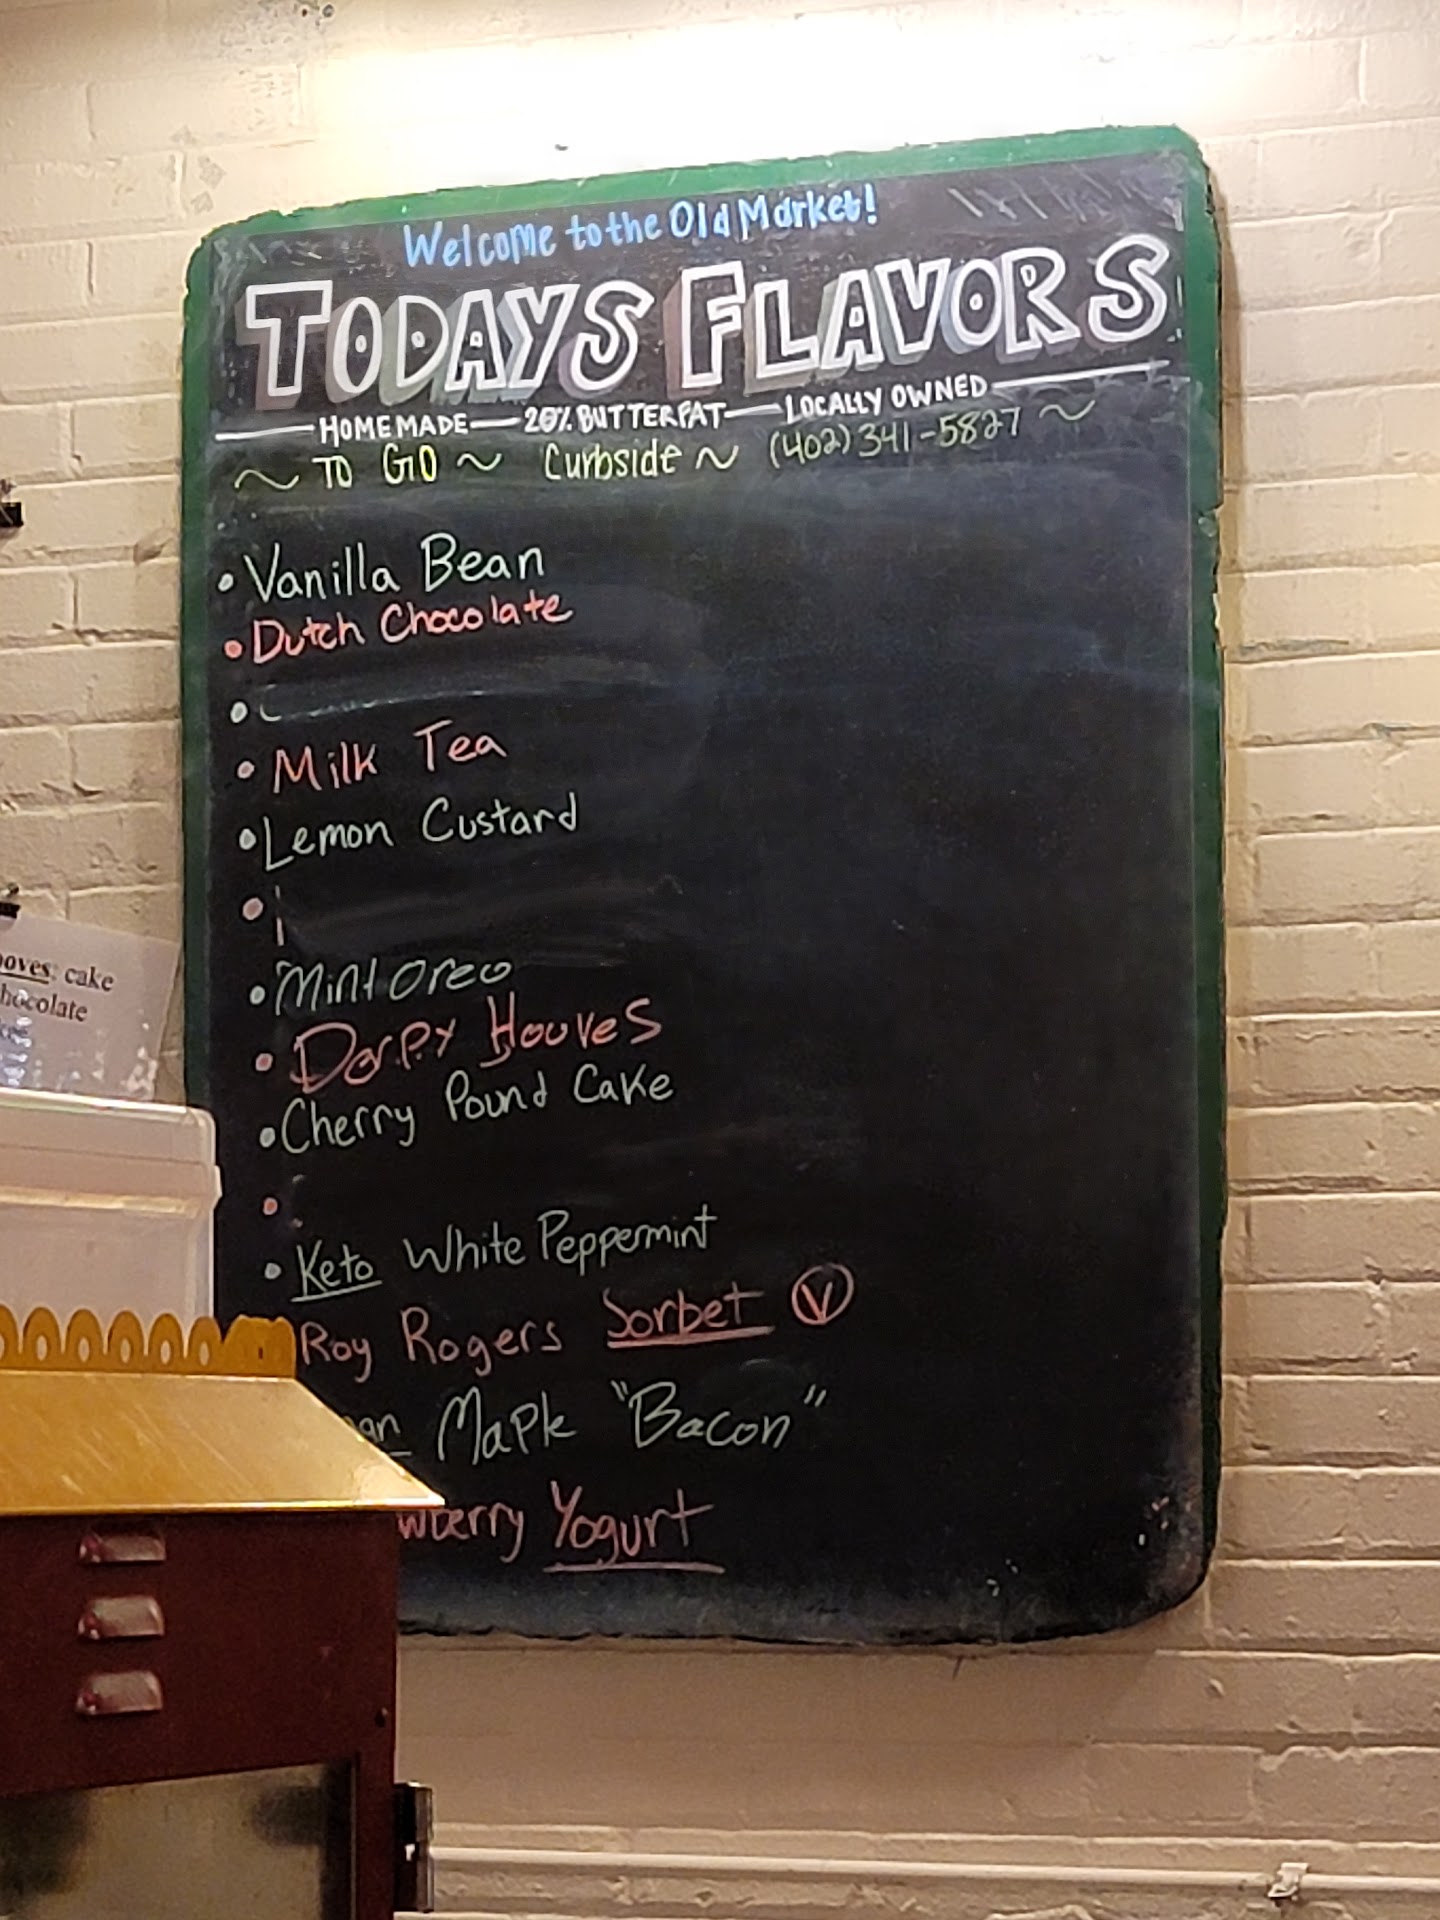 Welcome to the Old Market!
TODAYS FLAVORS
HOMEMADE — 20% BUTTERFAT — LOCALLY OWNED
~ TO GO ~ Curbside ~ (402) 341-5827 ~
• Vanilla Bean
• Dutch Chocolate
•
• Milk Tea
• Lemon Custard
•
• Mint Oreo
• Derpy Hooves
• Cherry Pound Cake
•
• Keto White Peppermint
Roy Rogers Sorbet Ⓥ
an Maple "Bacon"
wberry Yogurt
ooves: cake
hocolate